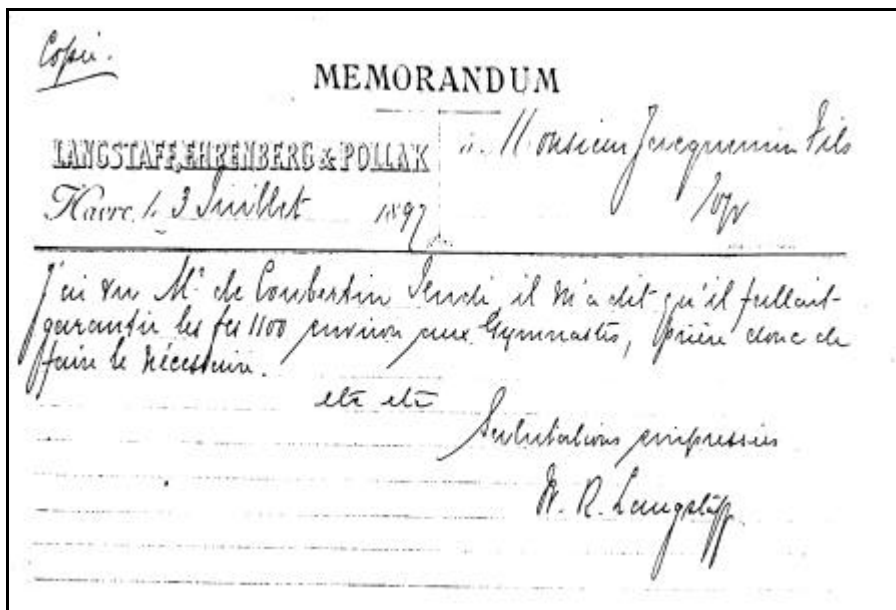 Copie.
MEMORANDUM
LANGSTAFF, EHRENBERG & POLLAK
à Monsieur Jacquemin Fils
Havre, le 3 Juillet 1897
J'ai vu Mr de Coubertin Jeudi, il m'a dit qu'il fallait
garantir les fcs 1100 environ aux Gymnastes, prière donc de
faire le nécessaire.
etc etc
Salutations empressées
W. R. Langstaff